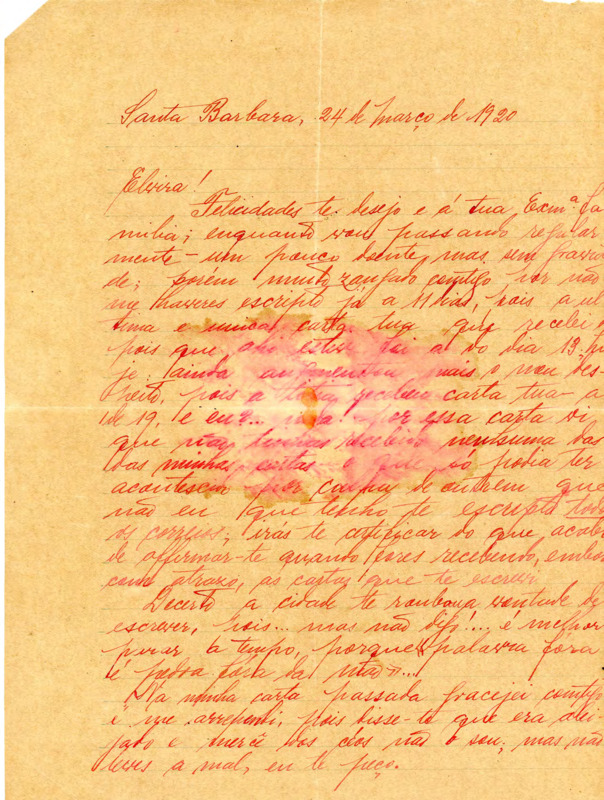 Santa Barbara, 24 de março de 1920
Elvira!
Felicidades te desejo e á tua Exmª fa
milia; enquanto vou passando regular
mente - um pouco doente, mas sem gravida
de; porém muito zangado comtigo por não
me haveres escripto já a 11 dias, pois a ul
tima e unica carta tua que recebi de
pois que foi a do dia 13. Ho
je ainda augmentou mais o meu des-
peito, pois a recebeu carta tua - a
de 19, e eu?... nada! Por essa carta vi
que não tinhas recebido nenhuma das
das minhas cartas o que só podia ter
acontescido por causa de outrem que
não eu que tenho te escripto todos
os correios; irás te certificar do que acabo
de affirmar-te quando fores recebendo, embora
com atrazo, as cartas que te escrevi.
Decerto a cidade te roubou a vontade de
escrever, pois... mas não digo!... é melhor
parar a tempo, porque "palavra fóra
é pedra fóra da mão"...
Na minha carta passada gracejei comtigo
e me arrependi, pois disse-te que era alei
jado e mercê dos céos não o sou; mas não
leves a mal, eu te peço.